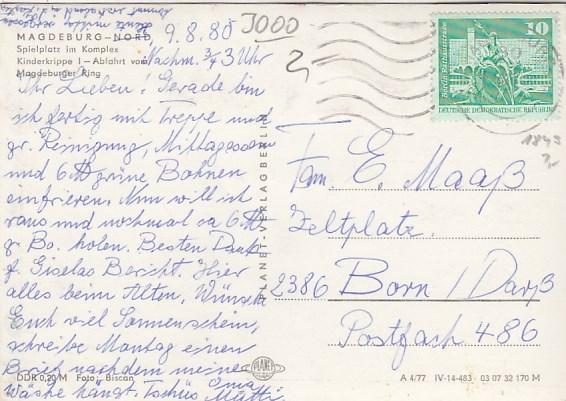 9.8.80
3000
MAGDEBURG-NORD
Spielplatz im Komplex
Kinderkrippe I - Abfahrt vom
Magdeburger Ring
Nachm. 3/4 3 Uhr
Ihr Lieben! Gerade bin
ich fertig mit Treppe und
gr. Reinigung, Mittagessen
und 6 grüne Bohnen
einfrieren. Nun will ich
raus und nochmal ca 6
gr. Bo. holen. Besten Dank
f. Giselas Bericht. Hier
alles beim Alten, Wünsche
Euch viel Sonnenschein,
schreibe Montag einen
Brief nachdem meine
Wäsche hängt. Tschüs
Oma
Mutti
DDR 0,20 M Foto: Biscan
PLANET-VERLAG BERLIN
PLANET
10
Berlin, Rathausstraße
DEUTSCHE DEMOKRATISCHE REPUBLIK
1849
Fam. E. Maaß
Zeltplatz
2386 Born / Darß
Postfach 486
A 4/77 IV-14-483 03 07 32 170 M